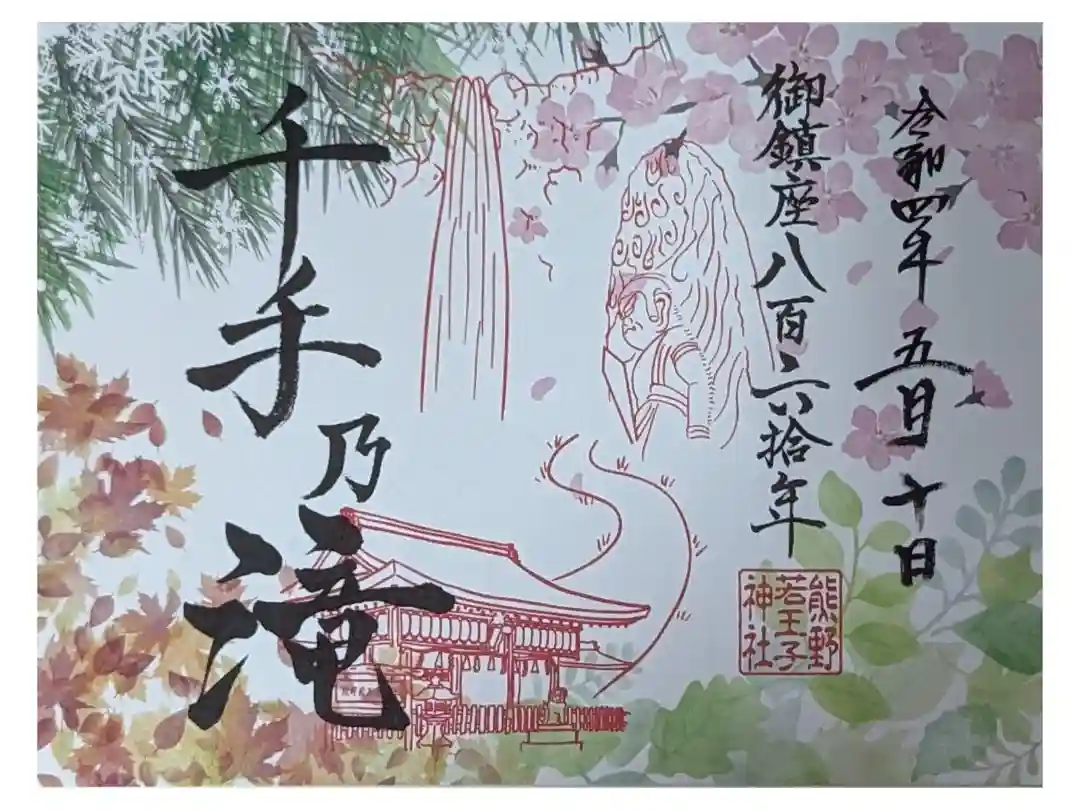 令和四年五月十日
御鎮座八百六拾年
熊野
若王子
神社
千手乃滝